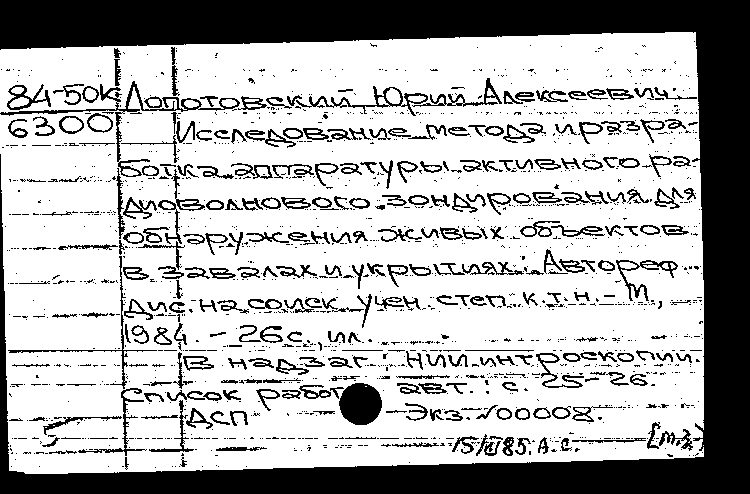 84-50к Лопотовский, Юрий Алексеевич.
6300 Исследование метода и разра-
ботка аппаратуры активного ра-
диоволнового зондирования для
обнаружения живых объектов
в завалах и укрытиях: Автореф.
дис. на соиск. учен. степ. к.т.н. - М.,
1984. - 26 с., ил.
В надзаг.: НИИ интроскопии.
Список работ авт.: с. 25-26.
ДСП Экз. №00008.
5
85. А.С. [м.з.]